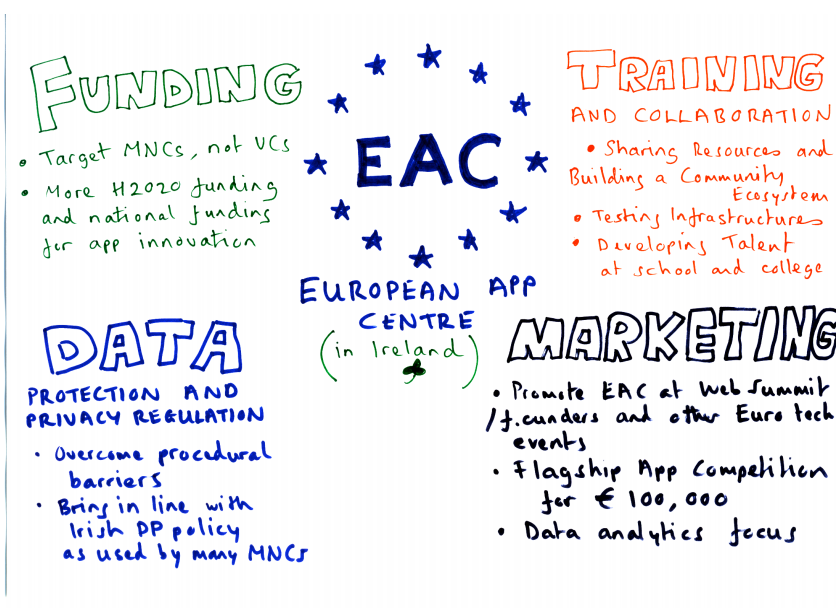 FUNDING
• Target MNCs, not VCs
• More H2020 funding
and national funding
for app innovation
EAC
EUROPEAN APP
CENTRE
(in Ireland)
TRAINING
AND COLLABORATION
• Sharing Resources and
Building a Community
Ecosystem
• Testing Infrastructures
• Developing Talent
at school and college
DATA
PROTECTION AND
PRIVACY REGULATION
• Overcome procedural
barriers
• Bring in line with
Irish DP policy
as used by many MNCs
MARKETING
• Promote EAC at Web Summit
/f.ounders and other Euro tech
events
• Flagship App Competition
for € 100,000
• Data analytics focus